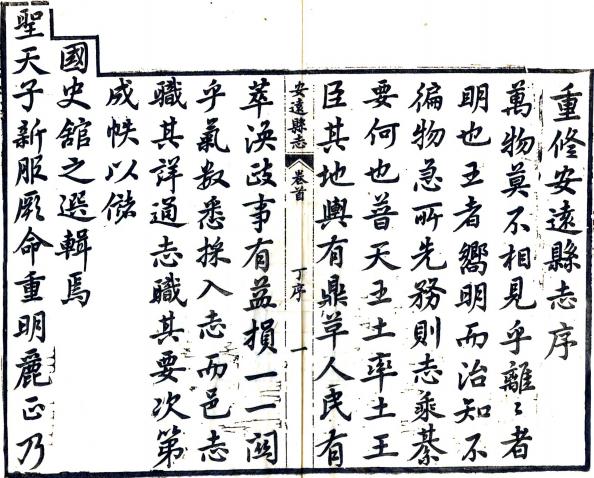 重修安遠縣志序
萬物莫不相見乎離離〻者
明也王者嚮明而治知不
徧物急所先務則志乘綦
要何也普天王土率土王
臣其地輿有鼎革人民有
安遠縣志 卷首 丁序 一
萃渙政事有益損一一關
乎氣数悉採入志而邑志
職其詳通志職其要次第
成帙以備
國史舘之選輯焉
聖天子新服厥命重明麗正乃